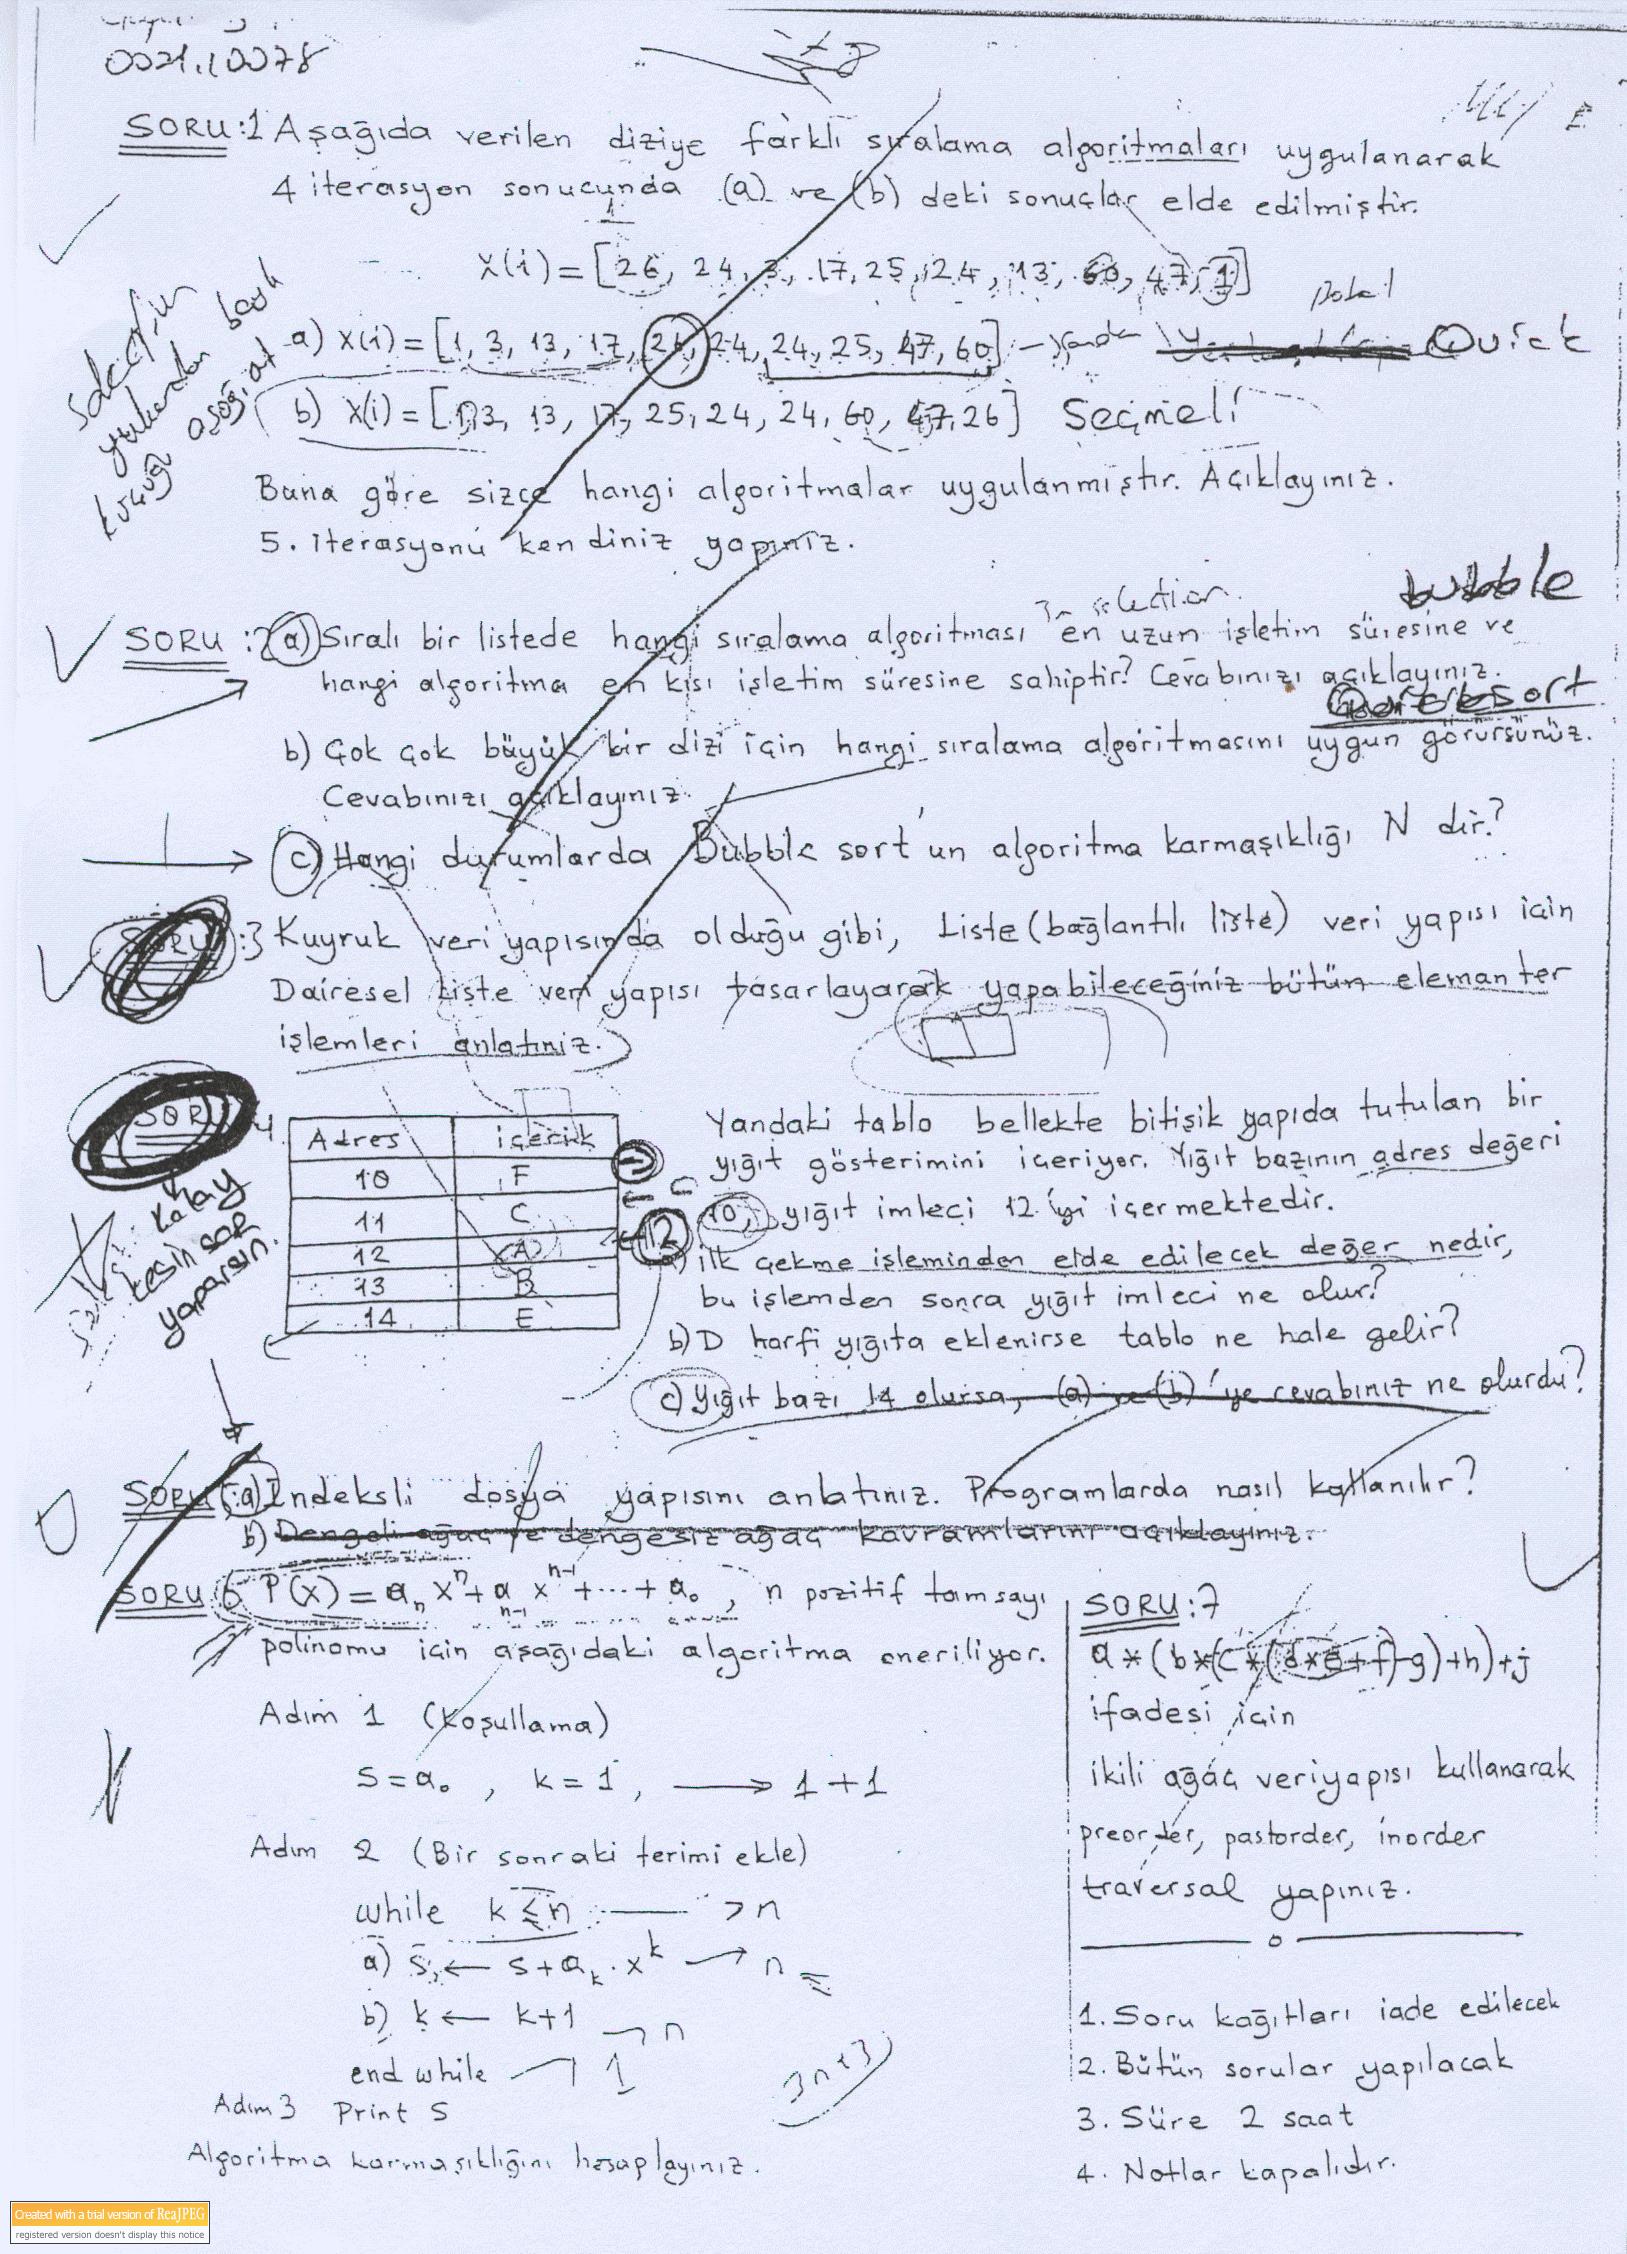 0021.10078
SORU:1 Aşağıda verilen diziye farklı sıralama algoritmaları uygulanarak
4 iterasyon sonucunda (a) ve (b) deki sonuçlar elde edilmiştir.
X(i) = [26, 24, 3, 17, 25, 24, 13, 60, 47, 1]
a) X(i) = [1, 3, 13, 17, 26, 24, 24, 25, 47, 60] Quick
b) X(i) = [1, 3, 13, 17, 25, 24, 24, 60, 47, 26] Seçmeli
Selection
yukarıdan başla
küçüğü aşağı at
Buna göre sizce hangi algoritmalar uygulanmıştır. Açıklayınız.
5. iterasyonu kendiniz yapınız.
selection
bubble
SORU:2 a) Sıralı bir listede hangi sıralama algoritması en uzun işletim süresine ve
hangi algoritma en kısı işletim süresine sahiptir? Cevabınızı açıklayınız.
b) Çok çok büyük bir dizi için hangi sıralama algoritmasını uygun görürsünüz.
Cevabınızı açıklayınız.
c) Hangi durumlarda Bubble sort'un algoritma karmaşıklığı N dir?
SORU:3 Kuyruk veri yapısında olduğu gibi, Liste (bağlantılı liste) veri yapısı için
Dairesel Liste veri yapısı tasarlayarak yapabileceğiniz bütün elemanter
işlemleri anlatınız.
SORU 4
Adres içerik
10 F
11 C
12 A
13 B
14 E
12
kolay
kesin sor
yaparsın.
Yandaki tablo bellekte bitişik yapıda tutulan bir
yığıt gösterimini içeriyor. Yığıt bazının adres değeri
10, yığıt imleci 12 'yi içermektedir.
a) ilk çekme işleminden elde edilecek değer nedir,
bu işlemden sonra yığıt imleci ne olur?
b) D harfi yığıta eklenirse tablo ne hale gelir?
c) Yığıt bazı 14 olursa, (a) ve (b) 'ye cevabınız ne olurdu?
SORU 5: a) İndeksli dosya yapısını anlatınız. Programlarda nasıl kullanılır?
b) Dengeli ağaç ve dengesiz ağaç kavramlarını açıklayınız.
SORU 6 P(x) = aₙxⁿ + aₙ₋₁xⁿ⁻¹ + ... + a₀, n pozitif tamsayı
polinomu için aşağıdaki algoritma öneriliyor.
Adım 1 (Koşullama)
S = a₀ , k = 1 , → 1 + 1
Adım 2 (Bir sonraki terimi ekle)
while k ≤ n → n
a) S ← S + aₖ . xᵏ → n
b) k ← k+1 → n
end while → 1
3n+3
Adım 3 Print S
Algoritma karmaşıklığını hesaplayınız.
SORU:7
a*(b*(c*(d*e+f)-g)+h)+j
ifadesi için
ikili ağaç veriyapısı kullanarak
preorder, pastorder, inorder
traversal yapınız.
1. Soru kağıtları iade edilecek
2. Bütün sorular yapılacak
3. Süre 2 saat
4. Notlar kapalıdır.
Created with a trial version of ReaJPEG
registered version doesn't display this notice